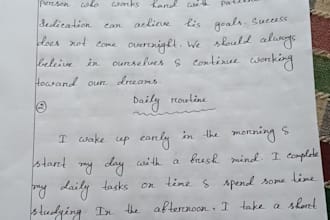 person who works hard with
dedication can achieve his goals. Success
does not come overnight. We should always
beleive in ourselves & continue working
toward our dreams.
② Daily routine
I wake up early in the morning &
start my day with a fresh mind. I complete
my daily tasks on time & spend some time
studying. In the afternoon, I take a short